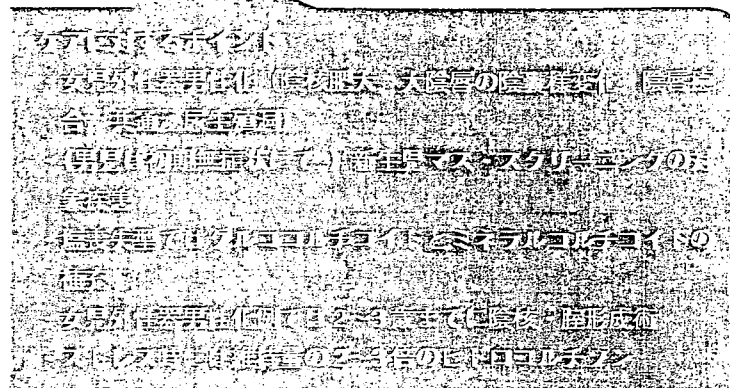 ケアに対するポイント
女児外性器男性化（陰核肥大，大陰唇の陰嚢様変化，陰唇癒
合，共通泌尿生殖洞）
（男児は初期無症状で）新生児マス・スクリーニングの対
象疾患
塩喪失型ではグルココルチコイドとミネラルコルチコイドの
補充
女児外性器男性化例では2～3歳までに陰核・腟形成術
ストレス時には維持量の2～3倍のヒドロコルチゾン